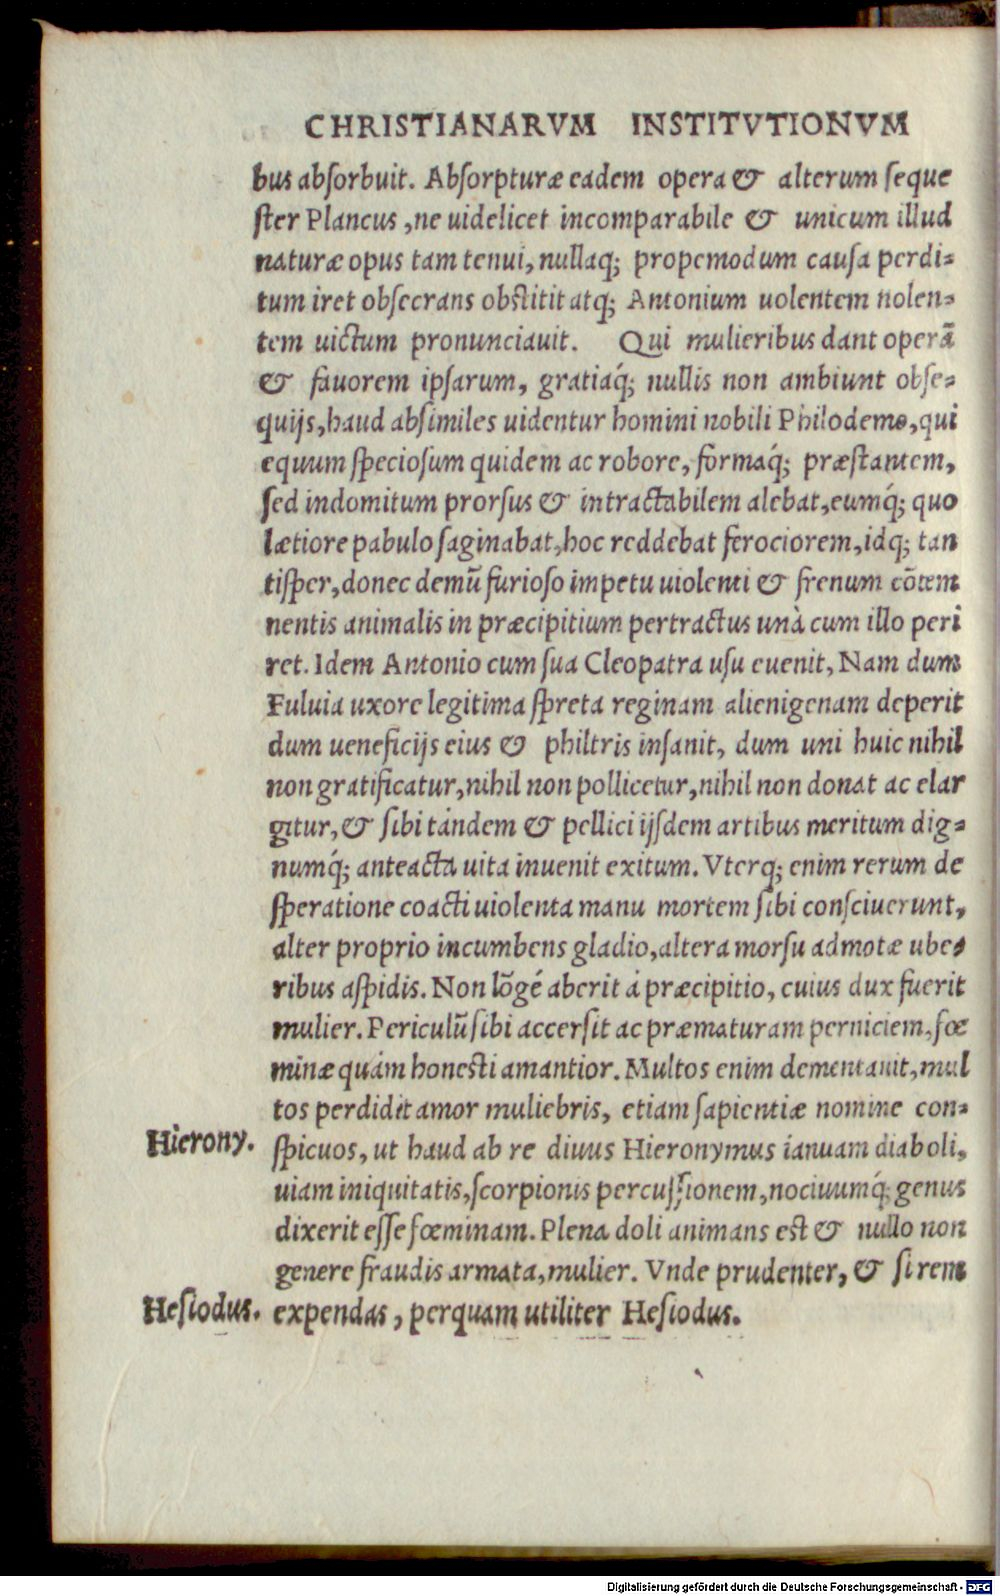 CHRISTIANARVM INSTITVTIONVM
bus absorbuit. Absorpturæ eadem opera & alterum seque
ster Plancus, ne uidelicet incomparabile & unicum illud
naturæ opus tam tenui, nullaq; propemodum causa perdi-
tum iret obsecrans obstitit atq; Antonium uolentem nolen-
tem uictum pronunciauit. Qui mulieribus dant operā
& fauorem ipsarum, gratiaq́; nullis non ambiunt obse-
quijs, haud absimiles uidentur homini nobili Philodemo, qui
equum speciosum quidem ac robore, formaq́; præstantem,
sed indomitum prorsus & intractabilem alebat, eumq́; quo
lætiore pabulo saginabat, hoc reddebat ferociorem, idq; tan
tisper, donec demū furioso impetu uiolenti & frenum cōtem
nentis animalis in præcipitium pertractus unà cum illo peri
ret. Idem Antonio cum sua Cleopatra usu euenit, Nam dum
Fuluia uxore legitima spreta reginam alienigenam deperit
dum ueneficijs eius & philtris insanit, dum uni huic nihil
non gratificatur, nihil non pollicetur, nihil non donat ac elar
gitur, & sibi tandem & pellici ijsdem artibus meritum dig-
numq́; anteacta uita inuenit exitum. Vterq; enim rerum de
speratione coacti uiolenta manu mortem sibi consciuerunt,
alter proprio incumbens gladio, altera morsu admotæ ube-
ribus aspidis. Non lōgé aberit á præcipitio, cuius dux fuerit
mulier. Periculū sibi accersit ac præmaturam perniciem, fœ
minæ quám honesti amantior. Multos enim dementauit, mul
tos perdidit amor muliebris, etiam sapientiæ nomine con-
Hierony. spicuos, ut haud ab re diuus Hieronymus ianuam diaboli,
uiam iniquitatis, scorpionis percussionem, nociuumq́; genus
dixerit esse fœminam. Plena doli animans est & nullo non
genere fraudis armata, mulier. Vnde prudenter, & si rem
Hesiodus. expendas, perquam utiliter Hesiodus.
Digitalisierung gefördert durch die Deutsche Forschungsgemeinschaft - DFG